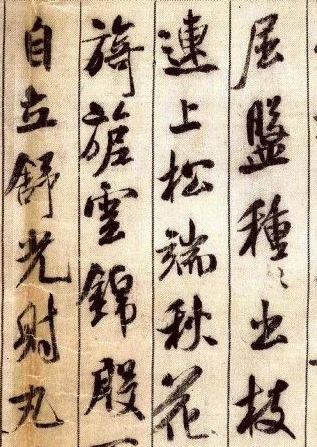 屈盤種〻出枝
連上松端秋花
旖旎雲錦殷
自立舒光射丸